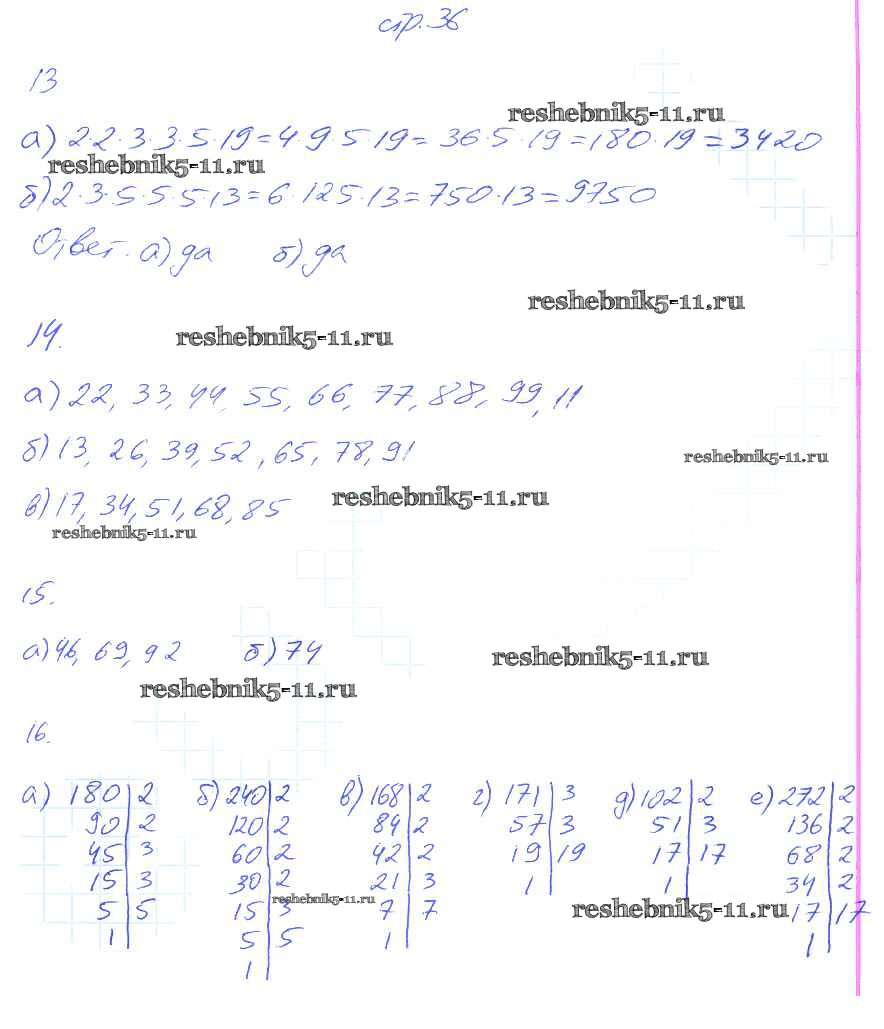 стр. 36
13
reshebnik5-11.ru
а) 2·2·3·3·5·19=4·9·5·19=36·5·19=180·19=3420
reshebnik5-11.ru
б) 2·3·5·5·5·13=6·125·13=750·13=9750
Ответ. а) да б) да
reshebnik5-11.ru
14. reshebnik5-11.ru
а) 22, 33, 44, 55, 66, 77, 88, 99, 11
б) 13, 26, 39, 52, 65, 78, 91
reshebnik5-11.ru
в) 17, 34, 51, 68, 85 reshebnik5-11.ru
reshebnik5-11.ru
15.
а) 46, 69, 92 б) 74
reshebnik5-11.ru
reshebnik5-11.ru
16.
а) 180|2 б) 240|2 в) 168|2 г) 171|3 д) 102|2 е) 272|2
90|2 120|2 84|2 57|3 51|3 136|2
45|3 60|2 42|2 19|19 17|17 68|2
15|3 30|2 21|3 1| 1| 34|2
reshebnik5-11.ru
5|5 15|3 7|7 reshebnik5-11.ru 17|17
1| 5|5 1| 1|
1|